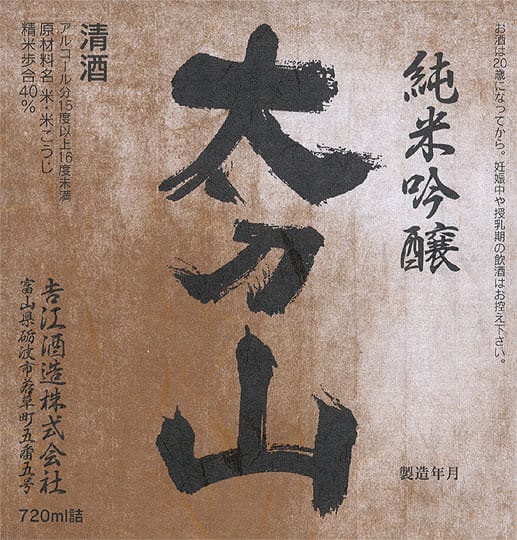 お酒は20歳になってから。妊娠中や授乳期の飲酒はお控え下さい。
純米吟醸
製造年月
太刀山
清酒
アルコール分15度以上16度未満
原材料名 米・米こうじ
精米歩合40%
吉江酒造株式会社
富山県砺波市若草町五番五号
720ml詰